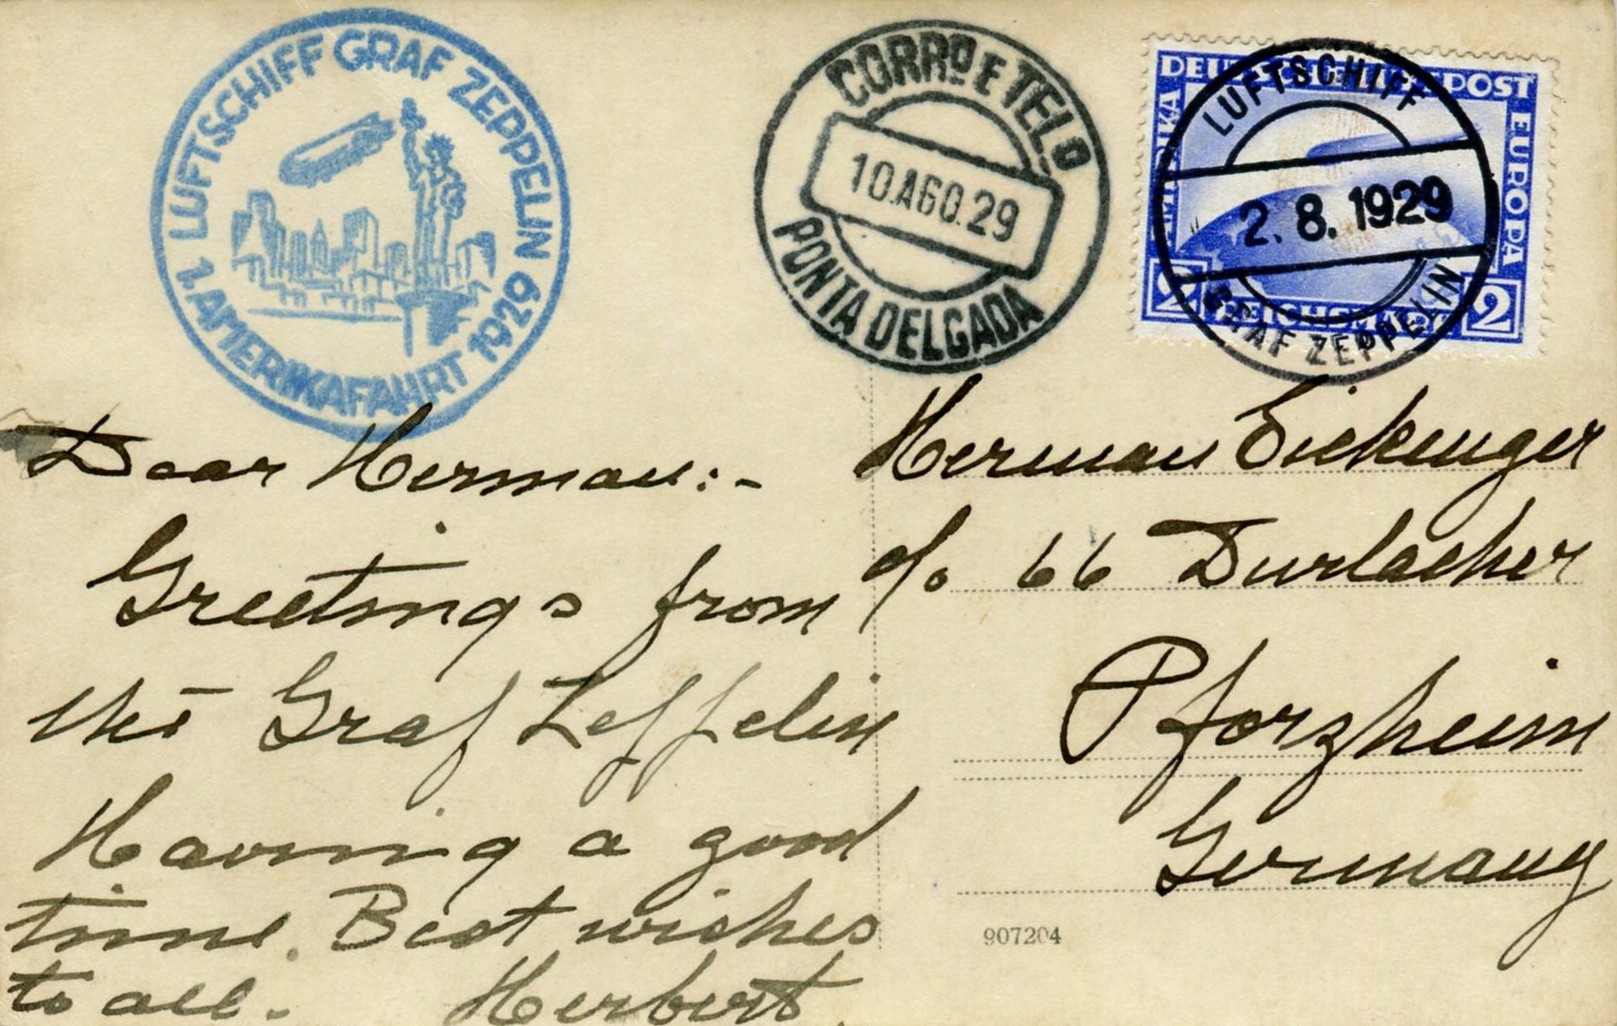 LUFTSCHIFF GRAF ZEPPELIN
1. AMERIKAFAHRT 1929
CORRO E TELO
10.AGO.29
PONTA DELGADA
DEUTSCHE LUFTPOST
AMERIKA
EUROPA
2 REICHSMARK 2
LUFTSCHIFF
2. 8. 1929
GRAF ZEPPELIN
Dear Herman:-
Greetings from
the Graf Zeppelin
Having a good
time. Best wishes
to all. Herbert.
Herman Eickenger
c/o 66 Durlacher
Pforzheim
Germany
907204